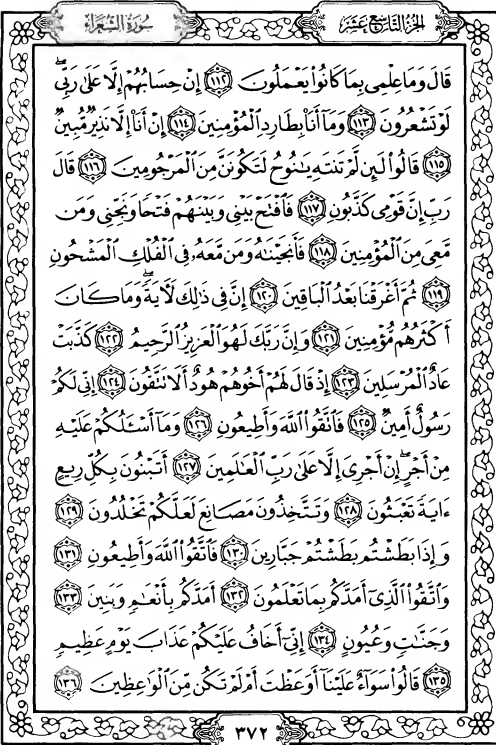 سُورَةُ الشُّعَرَاءِ
الجُزءُ التَّاسِعَ عَشَرَ
قَالَ وَمَا عِلْمِى بِمَا كَانُوا۟ يَعْمَلُونَ ١١٢ إِنْ حِسَابُهُمْ إِلَّا عَلَىٰ رَبِّى ۖ
لَوْ تَشْعُرُونَ ١١٣ وَمَآ أَنَا۠ بِطَارِدِ ٱلْمُؤْمِنِينَ ١١٤ إِنْ أَنَا۠ إِلَّا نَذِيرٌ مُّبِينٌ
١١٥ قَالُوا۟ لَئِن لَّمْ تَنتَهِ يَٰنُوحُ لَتَكُونَنَّ مِنَ ٱلْمَرْجُومِينَ ١١٦ قَالَ
رَبِّ إِنَّ قَوْمِى كَذَّبُونِ ١١٧ فَٱفْتَحْ بَيْنِى وَبَيْنَهُمْ فَتْحًا وَنَجِّنِى وَمَن
مَّعِىَ مِنَ ٱلْمُؤْمِنِينَ ١١٨ فَأَنجَيْنَٰهُ وَمَن مَّعَهُۥ فِى ٱلْفُلْكِ ٱلْمَشْحُونِ
١١٩ ثُمَّ أَغْرَقْنَا بَعْدُ ٱلْبَاقِينَ ١٢٠ إِنَّ فِى ذَٰلِكَ لَءَايَةً ۖ وَمَا كَانَ
أَكْثَرُهُم مُّؤْمِنِينَ ١٢١ وَإِنَّ رَبَّكَ لَهُوَ ٱلْعَزِيزُ ٱلرَّحِيمُ ١٢٢ كَذَّبَتْ
عَادٌ ٱلْمُرْسَلِينَ ١٢٣ إِذْ قَالَ لَهُمْ أَخُوهُمْ هُودٌ أَلَا تَتَّقُونَ ١٢٤ إِنِّى لَكُمْ
رَسُولٌ أَمِينٌ ١٢٥ فَٱتَّقُوا۟ ٱللَّهَ وَأَطِيعُونِ ١٢٦ وَمَآ أَسْـَٔلُكُمْ عَلَيْهِ
مِنْ أَجْرٍ ۖ إِنْ أَجْرِىَ إِلَّا عَلَىٰ رَبِّ ٱلْعَٰلَمِينَ ١٢٧ أَتَبْنُونَ بِكُلِّ رِيعٍ
ءَايَةً تَعْبَثُونَ ١٢٨ وَتَتَّخِذُونَ مَصَانِعَ لَعَلَّكُمْ تَخْلُدُونَ ١٢٩
وَإِذَا بَطَشْتُم بَطَشْتُمْ جَبَّارِينَ ١٣٠ فَٱتَّقُوا۟ ٱللَّهَ وَأَطِيعُونِ ١٣١
وَٱتَّقُوا۟ ٱلَّذِىٓ أَمَدَّكُم بِمَا تَعْلَمُونَ ١٣٢ أَمَدَّكُم بِأَنْعَٰمٍ وَبَنِينَ ١٣٣
وَجَنَّٰتٍ وَعُيُونٍ ١٣٤ إِنِّىٓ أَخَافُ عَلَيْكُمْ عَذَابَ يَوْمٍ عَظِيمٍ
١٣٥ قَالُوا۟ سَوَآءٌ عَلَيْنَآ أَوَعَظْتَ أَمْ لَمْ تَكُن مِّنَ ٱلْوَٰعِظِينَ ١٣٦
٣٧٢